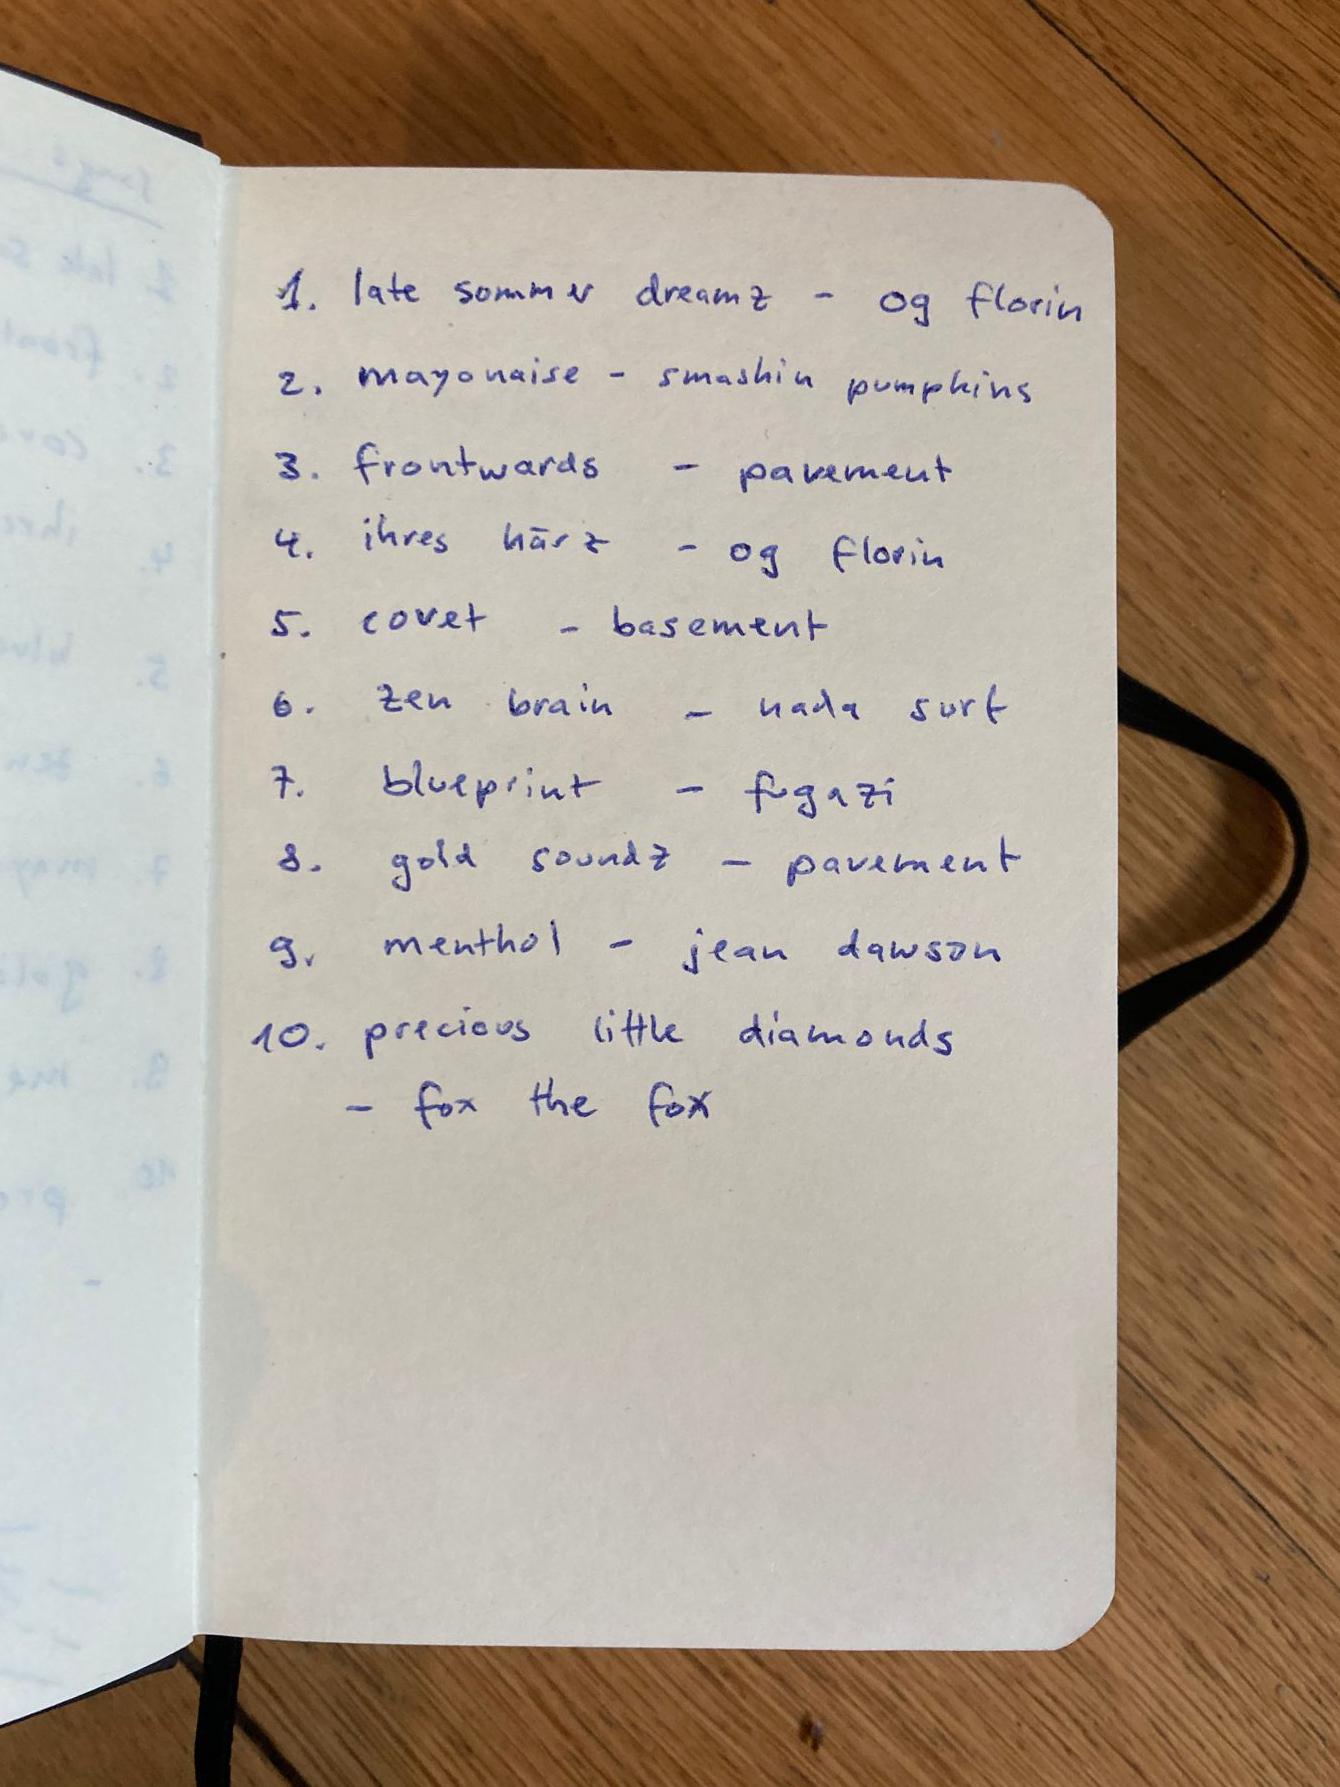 1. late sommer dreamz - og florin
2. mayonaise - smashin pumpkins
3. frontwards - pavement
4. ihres härz - og florin
5. covet - basement
6. zen brain - nada surf
7. blueprint - fugazi
8. gold soundz - pavement
9. menthol - jean dawson
10. precious little diamonds
- fox the fox